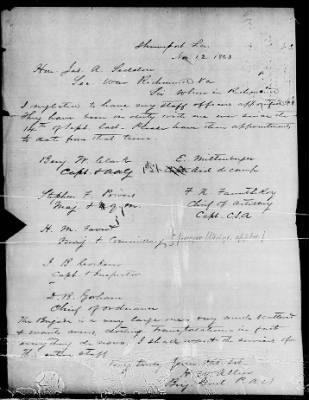 Shreveport La.
Nov 12 1863
Hon. Jas. A. Seddon
Sec War Richmond Va
Sir When in Richmond
I neglected to have my staff officers appointed
They have been on duty with me ever since the
14th of Sept. last. Please have their appointments
to date from that time.
Benj. W. Clark
Capt & aag
E. Miltenberger
Aid de camp
Stephen F.
Maj &
F. R.
Chief of artillery
Capt. C.S.A
H. M. Favrot
I. B.
Capt & Inspector
D. R. Gorham
Chief of ordnance
The Brigade is a very large one very much scattered
& wants arms, clothing transportation in fact
every thing de novo, I shall want the services of
the entire staff
Very truly Your obt Svt
H W Allen
Brig Genl P.A.C.S